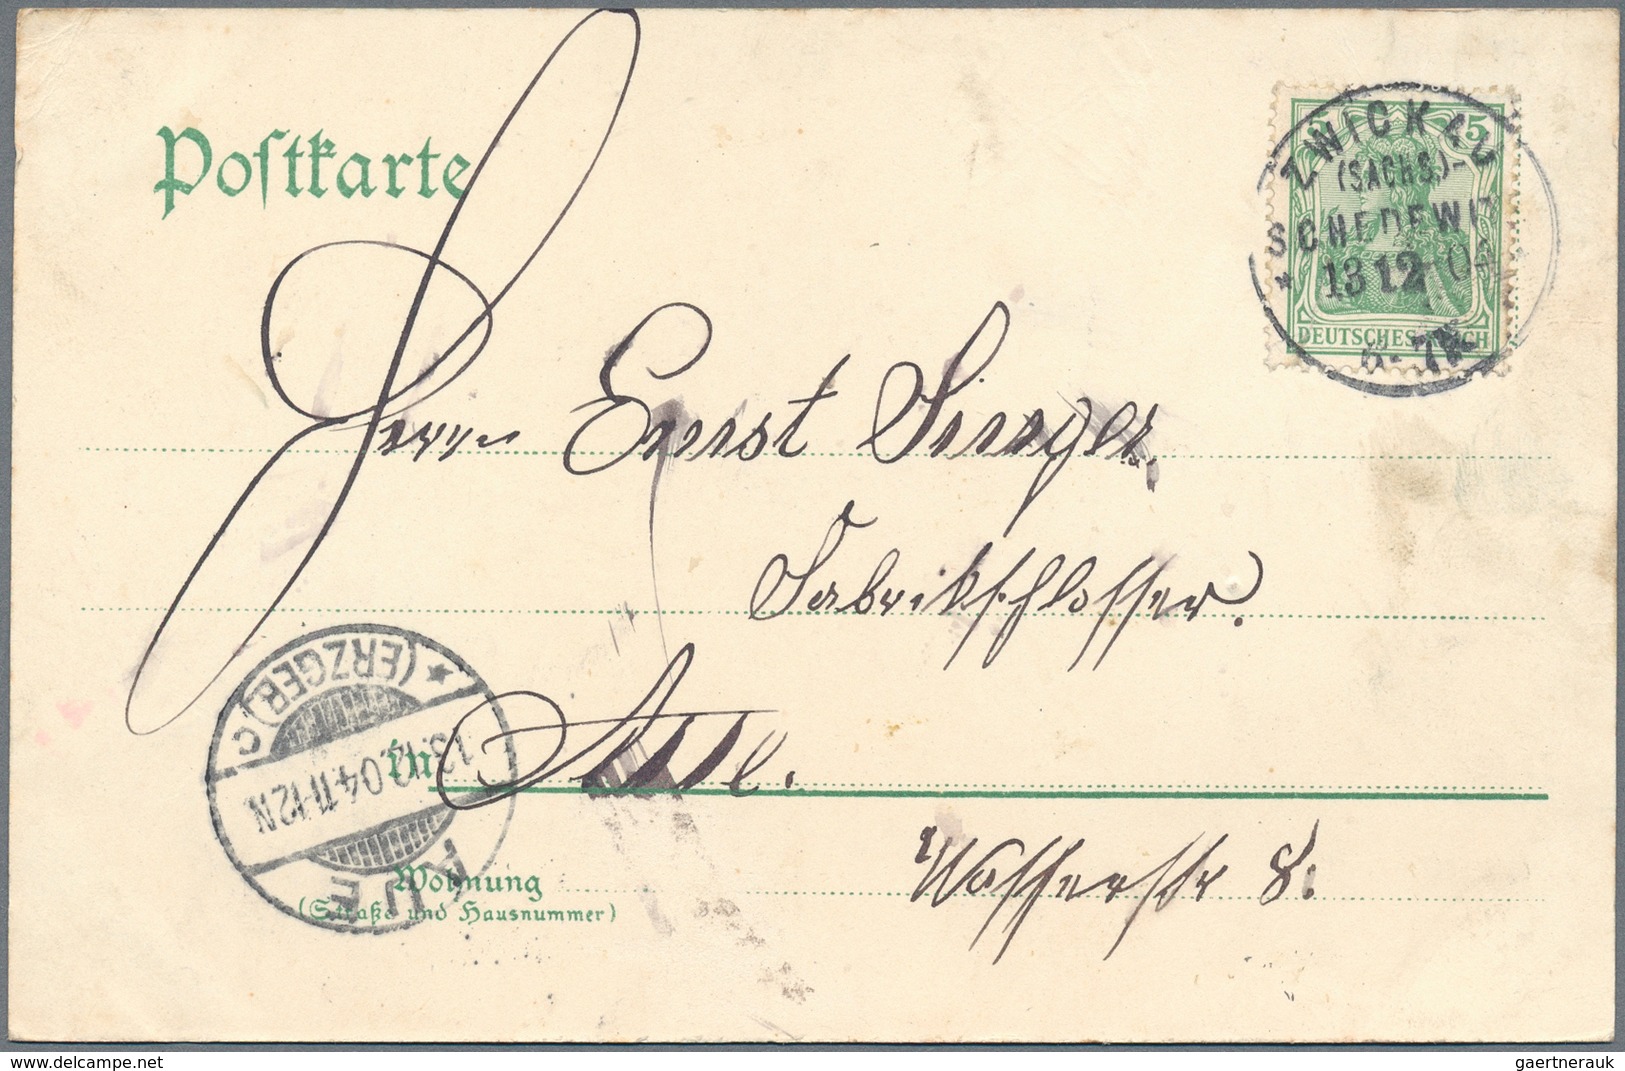 Postkarte
5
ZWICKAU
(SACHS.)-
SCHEDEWITZ
* 13 12 04
6-7N
DEUTSCHES REICH
Herrn Ernst Singer
Fabrikschlosser.
in Aue.
* (ERZGEB.) C
13.12.04.11-12N
AUE
Wohnung
(Straße und Hausnummer)
Wasserstr 8.
delcampe.net
gaertnerauk